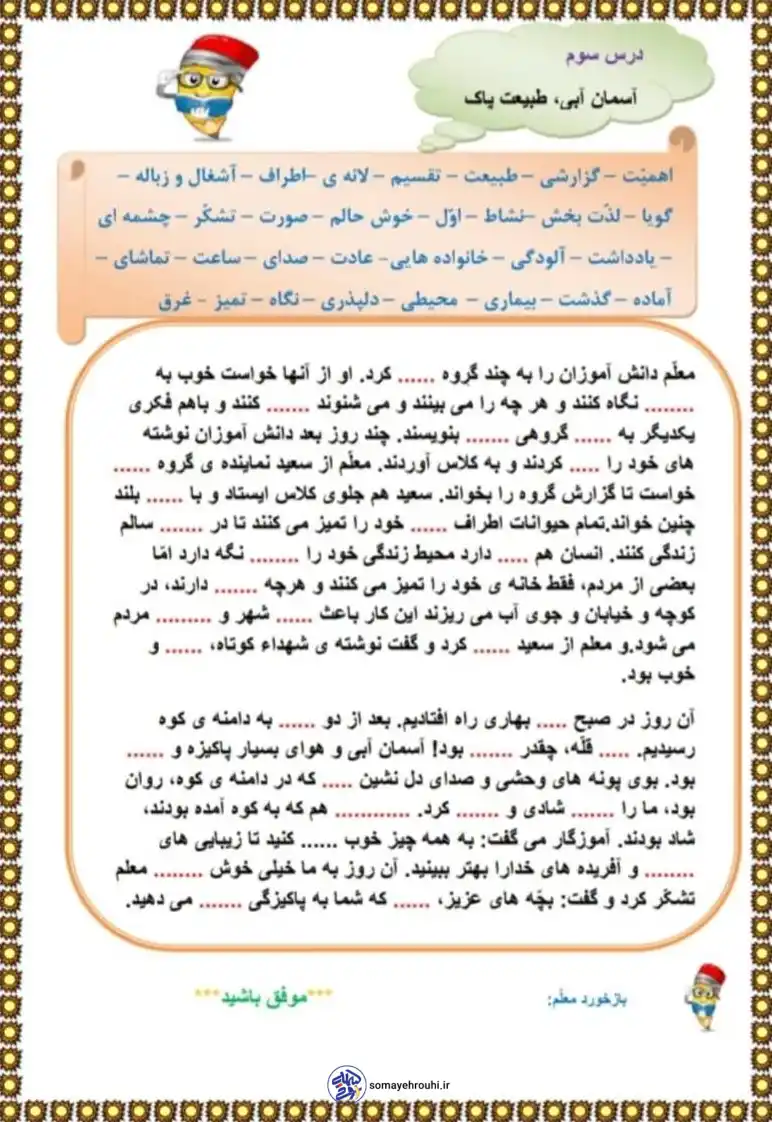 درس سوم
آسمان آبی، طبیعت پاک
اهمیّت – گزارشی – طبیعت – تقسیم – لانه ی –اطراف – آشغال و زباله –
گویا – لذّت بخش –نشاط – اوّل – خوش حالم – صورت – تشکّر – چشمه ای
– یادداشت – آلودگی – خانواده هایی- عادت – صدای – ساعت – تماشای –
آماده – گذشت – بیماری – محیطی – دلپذیری – نگاه – تمیز - غرق
معلّم دانش آموزان را به چند گروه ...... کرد. او از آنها خواست خوب به
........ نگاه کنند و هر چه را می بینند و می شنوند ....... کنند و باهم فکری
یکدیگر به ...... گروهی ....... بنویسند. چند روز بعد دانش آموزان نوشته
های خود را ..... کردند و به کلاس آوردند. معلّم از سعید نماینده ی گروه ......
خواست تا گزارش گروه را بخواند. سعید هم جلوی کلاس ایستاد و با ...... بلند
چنین خواند.تمام حیوانات اطراف ...... خود را تمیز می کنند تا در ....... سالم
زندگی کنند. انسان هم ..... دارد محیط زندگی خود را ........ نگه دارد امّا
بعضی از مردم، فقط خانه ی خود را تمیز می کنند و هرچه ....... دارند، در
کوچه و خیابان و جوی آب می ریزند این کار باعث ...... شهر و ......... مردم
می شود.و معلم از سعید ...... کرد و گفت نوشته ی شهداء کوتاه، ...... و
خوب بود.
آن روز در صبح ..... بهاری راه افتادیم. بعد از دو ...... به دامنه ی کوه
رسیدیم. ..... قلّه، چقدر ....... بود! آسمان آبی و هوای بسیار پاکیزه و ......
بود. بوی پونه های وحشی و صدای دل نشین ..... که در دامنه ی کوه، روان
بود، ما را ....... شادی و ....... کرد. ............ هم که به کوه آمده بودند،
شاد بودند. آموزگار می گفت: به همه چیز خوب ...... کنید تا زیبایی های
........ و آفریده های خدارا بهتر ببینید. آن روز به ما خیلی خوش ........ معلم
تشکّر کرد و گفت: بچّه های عزیز، ...... که شما به پاکیزگی ....... می دهید.
بازخورد معلّم:
***موفق باشید***
somayehrouhi.ir